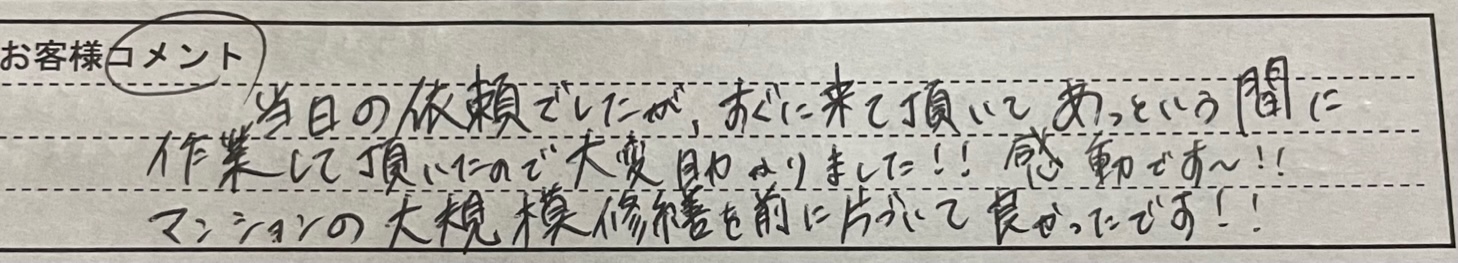 お客様コメント
当日の依頼でしたが、すぐに来て頂いてあっという間に
作業して頂いたので大変助かりました!! 感動です〜!!
マンションの大規模修繕を前に片づいて良かったです!!